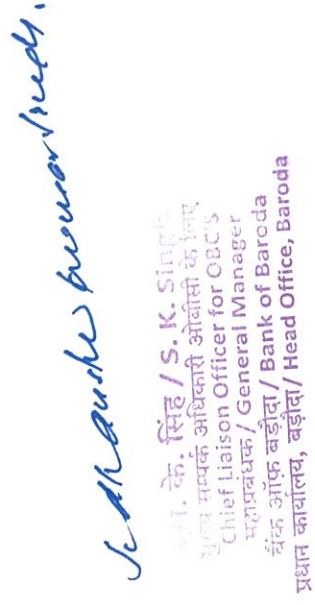 Sudhanshu Kumar Singh.
के. सिंह / S. K. Singh
मुख्य सम्पर्क अधिकारी ओबीसी के लिए
Chief Liaison Officer for OBC'S
महाप्रबंधक / General Manager
बैंक ऑफ बड़ौदा / Bank of Baroda
प्रधान कार्यालय, बड़ौदा / Head Office, Baroda